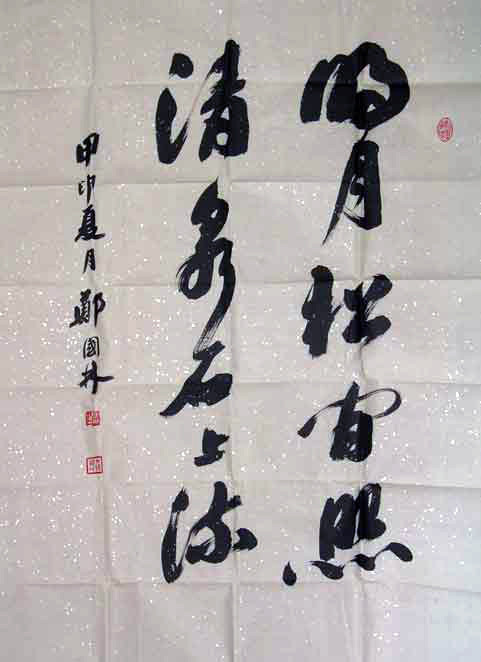 明月松间照
清泉石上流
甲申夏月 鄭國林